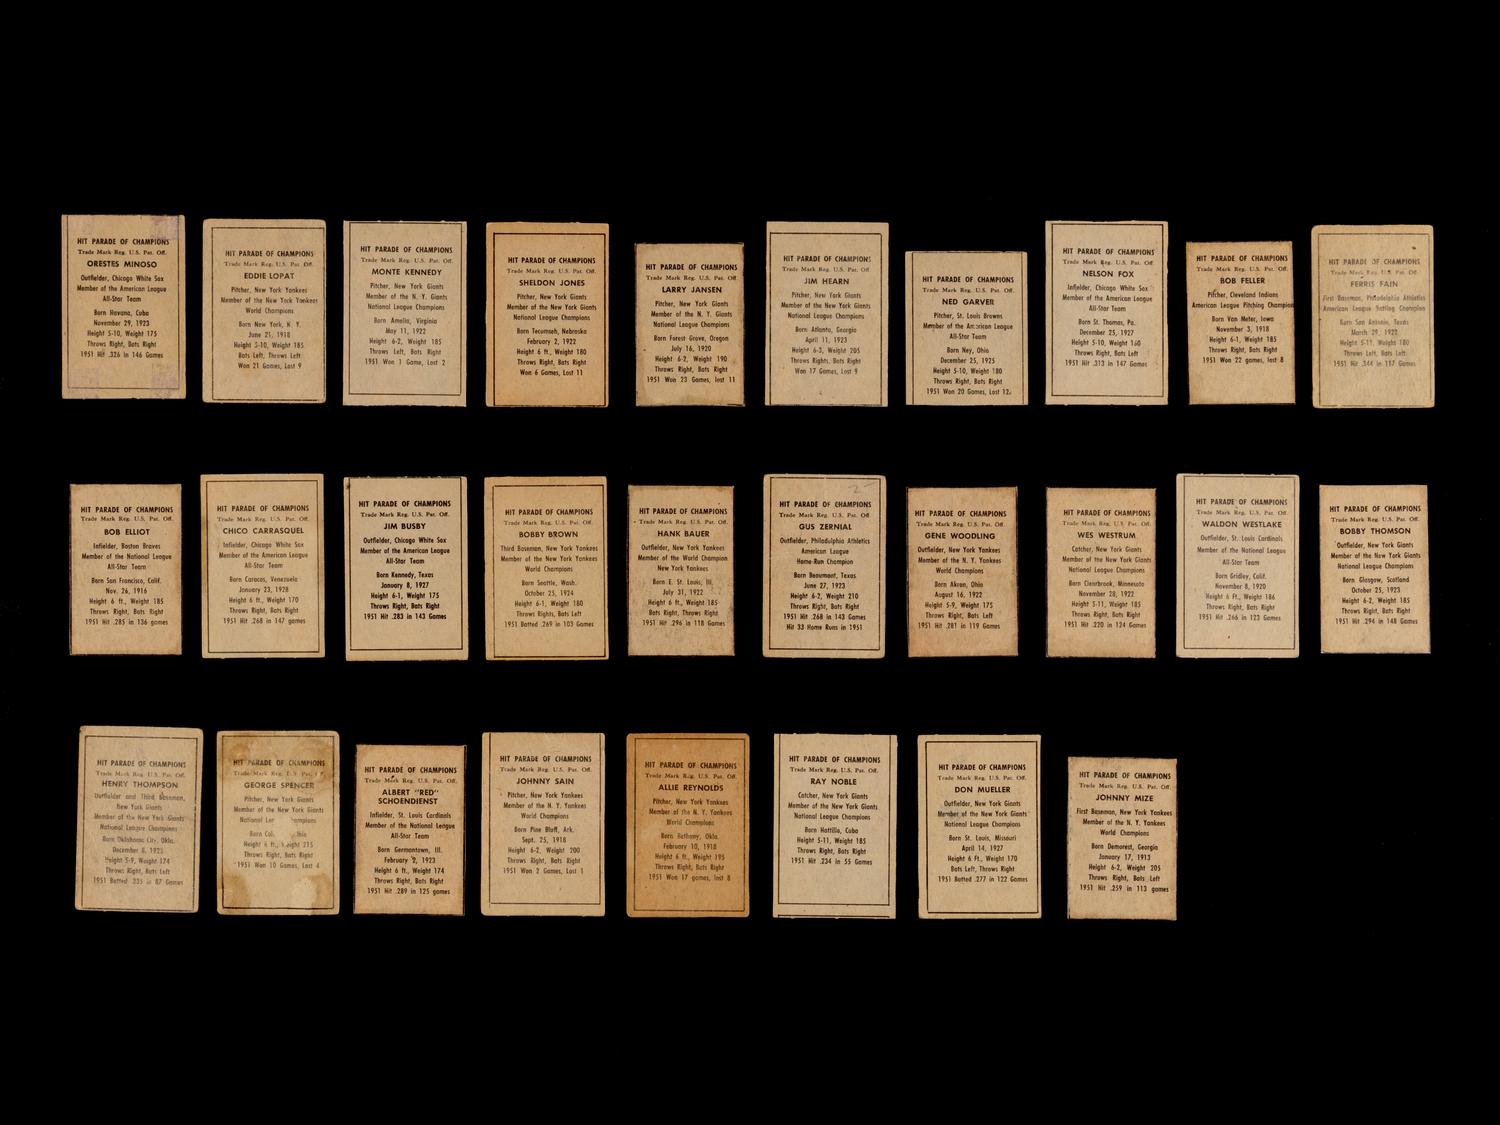 HIT PARADE OF CHAMPIONS
Trade Mark Reg. U.S. Pat. Off.
ORESTES MINOSO
Outfielder, Chicago White Sox
Member of the American League
All-Star Team
Born Havana, Cuba
November 29, 1923
Height 5-10, Weight 175
Throws Right, Bats Right
1951 Hit .326 in 146 Games
HIT PARADE OF CHAMPIONS
Trade Mark Reg. U.S. Pat. Off.
EDDIE LOPAT
Pitcher, New York Yankees
Member of the New York Yankees
World Champions
Born New York, N. Y.
June 21, 1918
Height 5-10, Weight 185
Bats Left, Throws Left
Won 21 Games, Lost 9
HIT PARADE OF CHAMPIONS
Trade Mark Reg. U.S. Pat. Off.
MONTE KENNEDY
Pitcher, New York Giants
Member of the N. Y. Giants
National League Champions
Born Amelia, Virginia
May 11, 1922
Height 6-2, Weight 185
Throws Left, Bats Right
1951 Won 1 Game, Lost 2
HIT PARADE OF CHAMPIONS
Trade Mark Reg. U.S. Pat. Off.
SHELDON JONES
Pitcher, New York Giants
Member of the New York Giants
National League Champions
Born Tecumseh, Nebraska
February 2, 1922
Height 6 ft., Weight 180
Throws Right, Bats Right
Won 6 Games, Lost 11
HIT PARADE OF CHAMPIONS
Trade Mark Reg. U.S. Pat. Off.
LARRY JANSEN
Pitcher, New York Giants
Member of the N. Y. Giants
National League Champions
Born Forest Grove, Oregon
July 16, 1920
Height 6-2, Weight 190
Throws Right, Bats Right
1951 Won 23 Games, lost 11
HIT PARADE OF CHAMPIONS
Trade Mark Reg. U.S. Pat. Off.
JIM HEARN
Pitcher, New York Giants
Member of the New York Giants
National League Champions
Born Atlanta, Georgia
April 11, 1923
Height 6-3, Weight 205
Throws Right, Bats Right
Won 17 Games, Lost 9
HIT PARADE OF CHAMPIONS
Trade Mark Reg. U.S. Pat. Off.
NED GARVER
Pitcher, St. Louis Browns
Member of the American League
All-Star Team
Born Ney, Ohio
December 25, 1925
Height 5-10, Weight 180
Throws Right, Bats Right
1951 Won 20 Games, Lost 12
HIT PARADE OF CHAMPIONS
Trade Mark Reg. U.S. Pat. Off.
NELSON FOX
Infielder, Chicago White Sox
Member of the American League
All-Star Team
Born St. Thomas, Pa.
December 25, 1927
Height 5-10, Weight 160
Throws Right, Bats Right
1951 Hit .313 in 147 Games
HIT PARADE OF CHAMPIONS
Trade Mark Reg. U.S. Pat. Off.
BOB FELLER
Pitcher, Cleveland Indians
American League Pitching Champion
Born Van Meter, Iowa
November 3, 1918
Height 6-1, Weight 185
Throws Right, Bats Right
1951 Won 22 games, lost 8
HIT PARADE OF CHAMPIONS
Trade Mark Reg. U.S. Pat. Off.
FERRIS FAIN
First Baseman, Philadelphia Athletics
American League Batting Champion
Born San Antonio, Texas
March 29, 1922
Height 5-11, Weight 180
Throws Left, Bats Left
1951 Hit .344 in 117 Games
HIT PARADE OF CHAMPIONS
Trade Mark Reg. U.S. Pat. Off.
BOB ELLIOT
Infielder, Boston Braves
Member of the National League
All-Star Team
Born San Francisco, Calif.
Nov. 26, 1916
Height 6 ft., Weight 185
Throws Right, Bats Right
1951 Hit .285 in 136 games
HIT PARADE OF CHAMPIONS
Trade Mark Reg. U.S. Pat. Off.
CHICO CARRASQUEL
Infielder, Chicago White Sox
Member of the American League
All-Star Team
Born Caracas, Venezuela
January 23, 1928
Height 6 ft., Weight 170
Throws Right, Bats Right
1951 Hit .268 in 147 games
HIT PARADE OF CHAMPIONS
Trade Mark Reg. U.S. Pat. Off.
JIM BUSBY
Outfielder, Chicago White Sox
Member of the American League
All-Star Team
Born Kennedy, Texas
January 8, 1927
Height 6-1, Weight 175
Throws Right, Bats Right
1951 Hit .283 in 143 Games
HIT PARADE OF CHAMPIONS
Trade Mark Reg. U.S. Pat. Off.
BOBBY BROWN
Third Baseman, New York Yankees
Member of the New York Yankees
World Champions
Born Seattle, Wash.
October 25, 1924
Height 6-1, Weight 180
Throws Right, Bats Left
1951 Batted .269 in 103 Games
HIT PARADE OF CHAMPIONS
Trade Mark Reg. U.S. Pat. Off.
HANK BAUER
Outfielder, New York Yankees
Member of the World Champion
New York Yankees
Born E. St. Louis, Ill.
July 31, 1922
Height 6 ft., Weight 185
Throws Right, Bats Right
1951 Hit .296 in 118 Games
HIT PARADE OF CHAMPIONS
Trade Mark Reg. U.S. Pat. Off.
GUS ZERNIAL
Outfielder, Philadelphia Athletics
American League
Home-Run Champion
Born Beaumont, Texas
June 27, 1923
Height 6-2, Weight 210
Throws Right, Bats Right
1951 Hit .268 in 143 Games
Hit 33 Home Runs in 1951
HIT PARADE OF CHAMPIONS
Trade Mark Reg. U.S. Pat. Off.
GENE WOODLING
Outfielder, New York Yankees
Member of the New York Yankees
World Champions
Born Akron, Ohio
August 16, 1922
Height 5-9, Weight 175
Throws Right, Bats Right
1951 Hit .281 in 119 Games
HIT PARADE OF CHAMPIONS
Trade Mark Reg. U.S. Pat. Off.
WES WESTRUM
Catcher, New York Giants
Member of the New York Giants
National League Champions
Born Clearbrook, Minnesota
November 28, 1922
Height 5-11, Weight 185
Throws Right, Bats Right
1951 Hit .220 in 124 Games
HIT PARADE OF CHAMPIONS
Trade Mark Reg. U.S. Pat. Off.
WALDON WESTLAKE
Outfielder, St. Louis Cardinals
Member of the National League
All-Star Team
Born Gridley, Calif.
November 8, 1920
Height 6 ft., Weight 186
Throws Right, Bats Right
1951 Hit .266 in 123 Games
HIT PARADE OF CHAMPIONS
Trade Mark Reg. U.S. Pat. Off.
BOBBY THOMSON
Outfielder, New York Giants
Member of the New York Giants
National League Champions
Born Glasgow, Scotland
October 25, 1923
Height 6-2, Weight 185
Throws Right, Bats Right
1951 Hit .294 in 148 Games
HIT PARADE OF CHAMPIONS
Trade Mark Reg. U.S. Pat. Off.
HENRY THOMPSON
Outfielder and Third Baseman,
New York Giants
Member of the New York Giants
National League Champions
Born Oklahoma City, Okla.
December 8, 1925
Height 5-9, Weight 174
Throws Right, Bats Left
1951 Batted .235 in 87 Games
HIT PARADE OF CHAMPIONS
Trade Mark Reg. U.S. Pat.
GEORGE SPENCER
Pitcher, New York Giants
Member of the New York Giants
National
Born
Height 6 ft., Weight 215
Throws Right, Bats Right
1951 Won 10 Games, Lost 4
HIT PARADE OF CHAMPIONS
Trade Mark Reg. U.S. Pat. Off.
ALBERT "RED"
SCHOENDIENST
Infielder, St. Louis Cardinals
Member of the National League
All-Star Team
Born Germantown, Ill.
February 2, 1923
Height 6 ft., Weight 174
Throws Right, Bats Right
1951 Hit .289 in 125 games
HIT PARADE OF CHAMPIONS
Trade Mark Reg. U.S. Pat. Off.
JOHNNY SAIN
Pitcher, New York Yankees
Member of the N. Y. Yankees
World Champions
Born Pine Bluff, Ark.
Sept. 25, 1918
Height 6-2, Weight 200
Throws Right, Bats Right
1951 Won 2 Games, Lost 1
HIT PARADE OF CHAMPIONS
Trade Mark Reg. U.S. Pat. Off.
ALLIE REYNOLDS
Pitcher, New York Yankees
Member of the N. Y. Yankees
World Champions
Born Bethany, Okla.
February 10, 1918
Height 6 ft., Weight 195
Throws Right, Bats Right
1951 Won 17 games, lost 8
HIT PARADE OF CHAMPIONS
Trade Mark Reg. U.S. Pat. Off.
RAY NOBLE
Catcher, New York Giants
Member of the New York Giants
National League Champions
Born Hattillo, Cuba
Height 5-11, Weight 185
Throws Right, Bats Right
1951 Hit .234 in 55 Games
HIT PARADE OF CHAMPIONS
Trade Mark Reg. U.S. Pat. Off.
DON MUELLER
Outfielder, New York Giants
Member of the New York Giants
National League Champions
Born St. Louis, Missouri
April 14, 1927
Height 6 Ft., Weight 170
Bats Left, Throws Right
1951 Batted .277 in 122 Games
HIT PARADE OF CHAMPIONS
Trade Mark Reg. U.S. Pat. Off.
JOHNNY MIZE
First Baseman, New York Yankees
Member of the N. Y. Yankees
World Champions
Born Demorest, Georgia
January 17, 1913
Height 6-2, Weight 205
Throws Right, Bats Left
1951 Hit .259 in 113 games